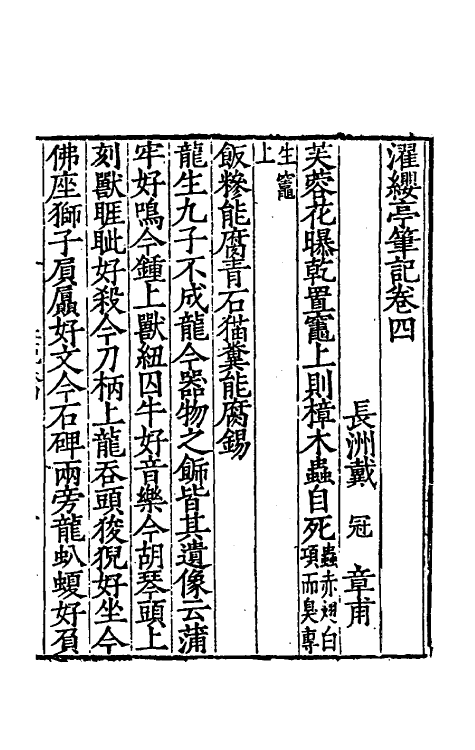 濯纓亭筆記卷四
長洲戴　冠　章甫
芙蓉花曝乾置竈上則樟木蟲自死蟲赤翅白項而臭專
生竈上
飯糝能腐青石猫糞能腐錫
龍生九子不成龍今器物之飾皆其遺像云蒲
牢好鳴今鍾上獸紐囚牛好音樂今胡琴頭上
刻獸睚眦好殺今刀柄上龍吞頭狻猊好坐今
佛座獅子屓屭好文今石碑兩旁龍䖤蝮好負